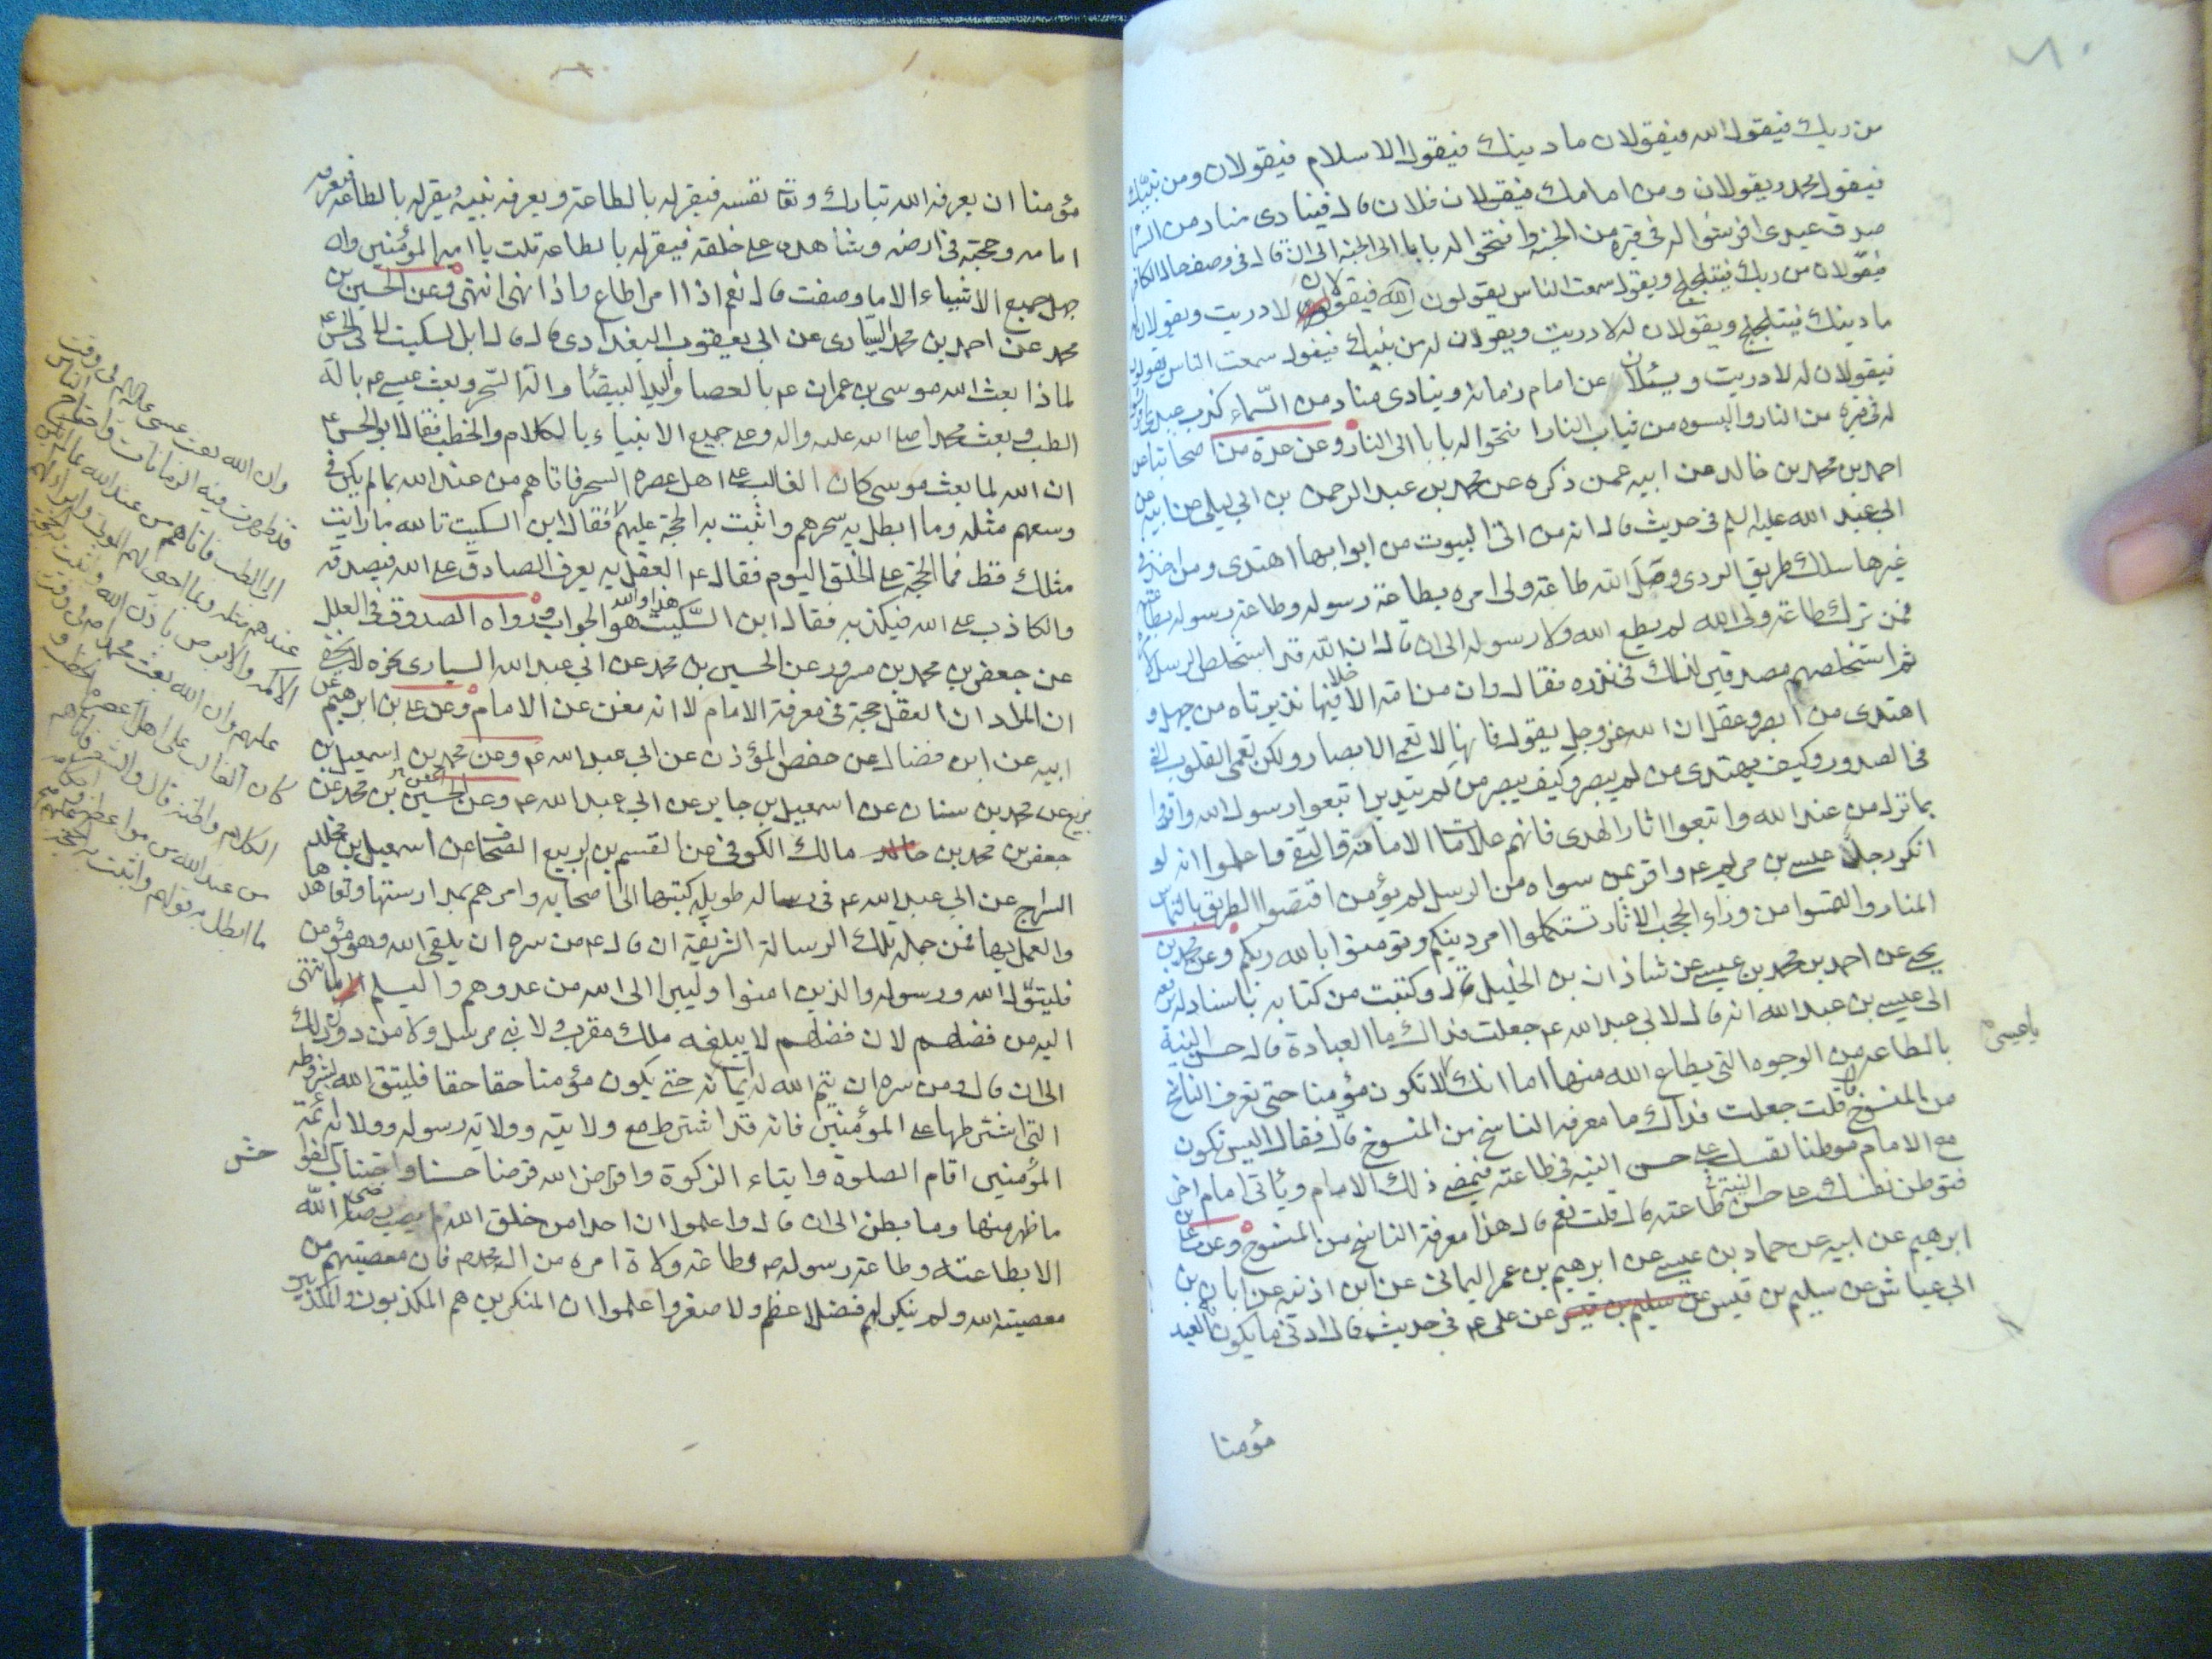 من ربك فيقول الله فيقولان ما دينك فيقول الاسلام فيقولان ومن نبيّك
فيقول محمد ويقولان ومن امامك فيقولان فلان قال فينادى مناد من السما
صدق عبدى افرشوا له فى قبره من الجنة وافتحوا له بابا الى الجنة الى ان قال فى وصف حال الكافر
فيقولان من ربك فيتلجلج ويقول سمعت الناس يقولون الله فيقولان لا دريت ويقولان له
ما دينك فيتلجلج ويقولان له لا دريت ويقولان له من نبيك فيقول سمعت الناس يقولون
فيقولان له لا دريت ويسئلان عن امام زمانه وينادى مناد من السّماء كذب عبدى افرشوا
له فى قبره من النار والبسوه من ثياب النار افتحوا له بابا الى النار وعن عدة من اصحابنا عن
احمد بن محمد بن خالد من ابيه عمن ذكره عن محمد بن عبد الرحمن بن ابى ليلى عن ابيه عن
ابى عبد الله عليه السلم فى حديث قال انه من اتى البيوت من ابوابها اهتدى ومن اخذ فى
غيرها سلك طريق الردى وصل الله طاعة ولى امره بطاعة رسوله وطاعة رسوله بطاعته
فمن ترك طاعة ولى الله لم يطع الله ولا رسوله الى ان قال ان الله قد استخلص الرسل لامره
ثم استخلصهم مصدقين لذلك فى نذره فقال وان من امة الا خلا فيها نذير تاه من جهل و
اهتدى من ابصر وعقل ان الله عز وجل يقول فانها لا تعمى الابصار ولكن تعمى القلوب التى
فى الصدور وكيف يهتدى من لم يبصر وكيف يبصر من لم يتدبر اتبعوا رسول الله واقروا
بما نزل من عند الله واتبعوا اثار الهدى فانهم علامات الامانة والتقى واعلموا انه لو
انكر رجل عيسى بن مريم ع واقر بمن سواه من الرسل لم يؤمن اقتصوا الطريق بالتماس
المنار والتمسوا من وراء الحجب الاثار تستكملوا امر دينكم وتؤمنوا بالله ربكم وعن محمد بن
يحيى عن احمد بن محمد بن عيسى عن شاذان بن الخليل قال وكتبت من كتابه باسناد له يرفعه
الى عيسى بن عبد الله انه قال لابى عبد الله ع جعلت فداك ما العبادة قال حسن النية
بالطاعة من الوجوه التى يطاع الله منها اما انك يا عيسى لا تكون مؤمنا حتى تعرف الناسخ
من المنسوخ قال قلت جعلت فداك ما معرفة الناسخ من المنسوخ قال فقال اليس تكون
مع الامام موطنا نفسك على حسن النية فى طاعته فيمضى ذلك الامام ويأتى امام اخر
فتوطن نفسك على حسن النية فى طاعته قال قلت نعم قال هذا معرفة الناسخ من المنسوخ وعن على بن
ابرهيم عن ابيه عن حماد بن عيسى عن ابرهيم بن عمر اليمانى عن ابن اذينه عن ابان بن
ابى عياش عن سليم بن قيس عن سليم بن قيس عن على ع فى حديث قال ادنى ما يكون به العبد
يا عيسى
مؤمنا
مؤمنا ان يعرفه الله تبارك وتعا نفسه فيقر له بالطاعة ويعرفه نبيه فيقر له بالطاعة ويعرفه
امامه وحجته فى ارضه وشاهده على خلقه فيقر له بالطاعة قلت يا امير المؤمنين وان
جهل جميع الاشياء الا ما وصفت قال نعم اذا امر اطاع واذا نهى انتهى وعن الحسين بن
محمد عن احمد بن محمد السيّارى عن ابى يعقوب البغدادى قال قال ابن السكيت لابى الحسن ع
لماذا بعث الله موسى بن عمران ع بالعصا واليد البيضا والة السحر وبعث عيسى ع بالة
الطب وبعث محمدا صلى الله عليه واله وعلى جميع الانبياء بالكلام والخطب فقال ابو الحسن ع
ان الله لما بعث موسى كان الغالب على اهل عصره السحر فاتاهم من عند الله بما لم يكن فى
وسعهم مثله وما ابطل به سحرهم واثبت به الحجة عليهم فقال ابن السكيت تالله ما رايت
مثلك قط فما الحجة على الخلق اليوم فقال ع العقل به يعرف الصادق على الله فيصدقه
والكاذب على الله فيكذبه فقال ابن السّكيت هذا والله هو الجواب ورواه الصدوق فى العلل
عن جعفر بن محمد بن مسرور عن الحسين بن محمد عن ابى عبد الله السيارى نحوه لا يخفى
ان المراد ان العقل حجة فى معرفة الامام لا انه مغن عن الامام وعن على بن ابرهيم عن
ابيه عن ابن فضال عن حفص المؤذن عن ابى عبد الله ع وعن محمد بن اسمعيل بن
بزيع عن محمد بن سنان عن اسمعيل بن جابر عن ابى عبد الله ع وعن الحسين بن محمد عن
جعفر بن محمد بن مالك الكوفى عن القسم بن الربيع الصحاف عن اسمعيل بن مخلد
السراج عن ابى عبد الله ع فى رسالة طويلة كتبها الى اصحابه وامرهم بمدارستها وتعاهدها
والعمل بها فمن جملة تلك الرسالة الشريفة ان قال ع من سره ان يلقى الله وهو مؤمن
فليتول الله ورسوله والذين امنوا وليبرا الى الله من عدوهم واليسلم لما انتهى
اليه من فضلهم لان فضلهم لا يبلغه ملك مقرب ولا نبى مرسل ولا من دون ذلك
الى ان قال ومن سره ان يتم الله له ايمانه حتى يكون مؤمنا حقا حقا فليتق الله بشروطه
التى اشترطها على المؤمنين فانه قد اشترط مع ولايته وولاية رسوله وولاية ائمة
المؤمنين اقام الصلوة وايتاء الزكوة واقراض الله قرضا حسنا واجتناب الفواحش
ما ظهر منها وما بطن الى ان قال واعلموا ان احدا من خلق الله لم يصب رضى الله
الا بطاعته وطاعة رسوله ص وطاعة ولاة امره من ال محمد ص فان معصيتهم من
معصية الله ولم ينكر لهم فضلا عظم ولا صغر واعلموا ان المنكرين هم المكذبون والمكذبين
وان الله بعث عيسى عليه السلم فى وقت
قد ظهرت فيه الزمانات واحتاج الناس
الى الطب فاتاهم من عند الله بما لم يكن
عندهم مثله وبما احيى لهم الموتى وابرا لهم
الاكمه والابرص باذن الله واثبت به الحجة
عليهم وان الله بعث محمدا ص فى وقت
كان الغالب على اهل عصره الخطب و
الكلام واظنه قال والشعر فاتاهم
من عند الله من مواعظه
ما ابطل به قولهم واثبت به الحجة